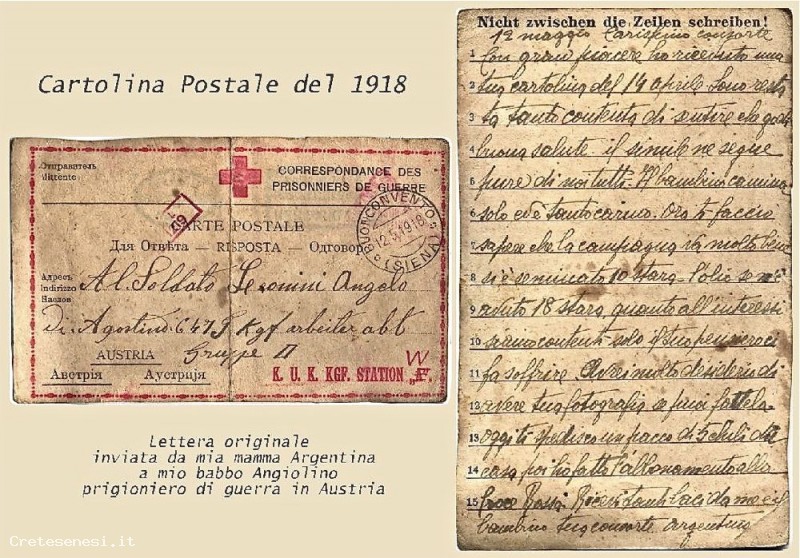 Cartolina Postale del 1918
Отправитель
Mittente
CORRESPONDANCE DES
PRISONNIERS DE GUERRE
CARTE POSTALE
Для Отвѣта — RISPOSTA — Одговор
BUONCONVENTO
12.5.1918
(SIENA)
Адресъ
Indirizzo
Al Soldato Leonini Angelo
di Agostino 6475 Kgf arbeiter abt
Gruppe II
AUSTRIA
Австрія Аустрија
K. U. K. KGF. STATION „F."
W
Lettera originale
inviata da mia mamma Argentina
a mio babbo Angiolino
prigioniero di guerra in Austria
Nicht zwischen die Zeilen schreiben!
12 maggio Carissimo consorte
1 Con gran piacere ho ricevuto una
2 tua cartolina del 19 aprile Sono resta
3 ta tanto contenta di sentire che godi
4 buona salute il simile ne segue
5 pure di noi tutti Il bambino camina
6 solo ed è tanto carino. Ora ti faccio
7 sapere che la campagna va molto bene
8 si è seminato 10 stara l'olio se n'è
9 avuto 18 stara, quanto all'interessi
10 siamo contenti solo il tuo pensiero ci
11 fa soffrire. Avrei molto desiderio di
12 avere tua fotografia se puoi fattela
13 oggi ti spedisco un pacco di 5 chili di
14 casa poi ho fatto l'abbonamento alla
15 Croce Rossa Ricevi tanti baci da me e il
bambino tua consorte Argentina
Cretesenesi.it